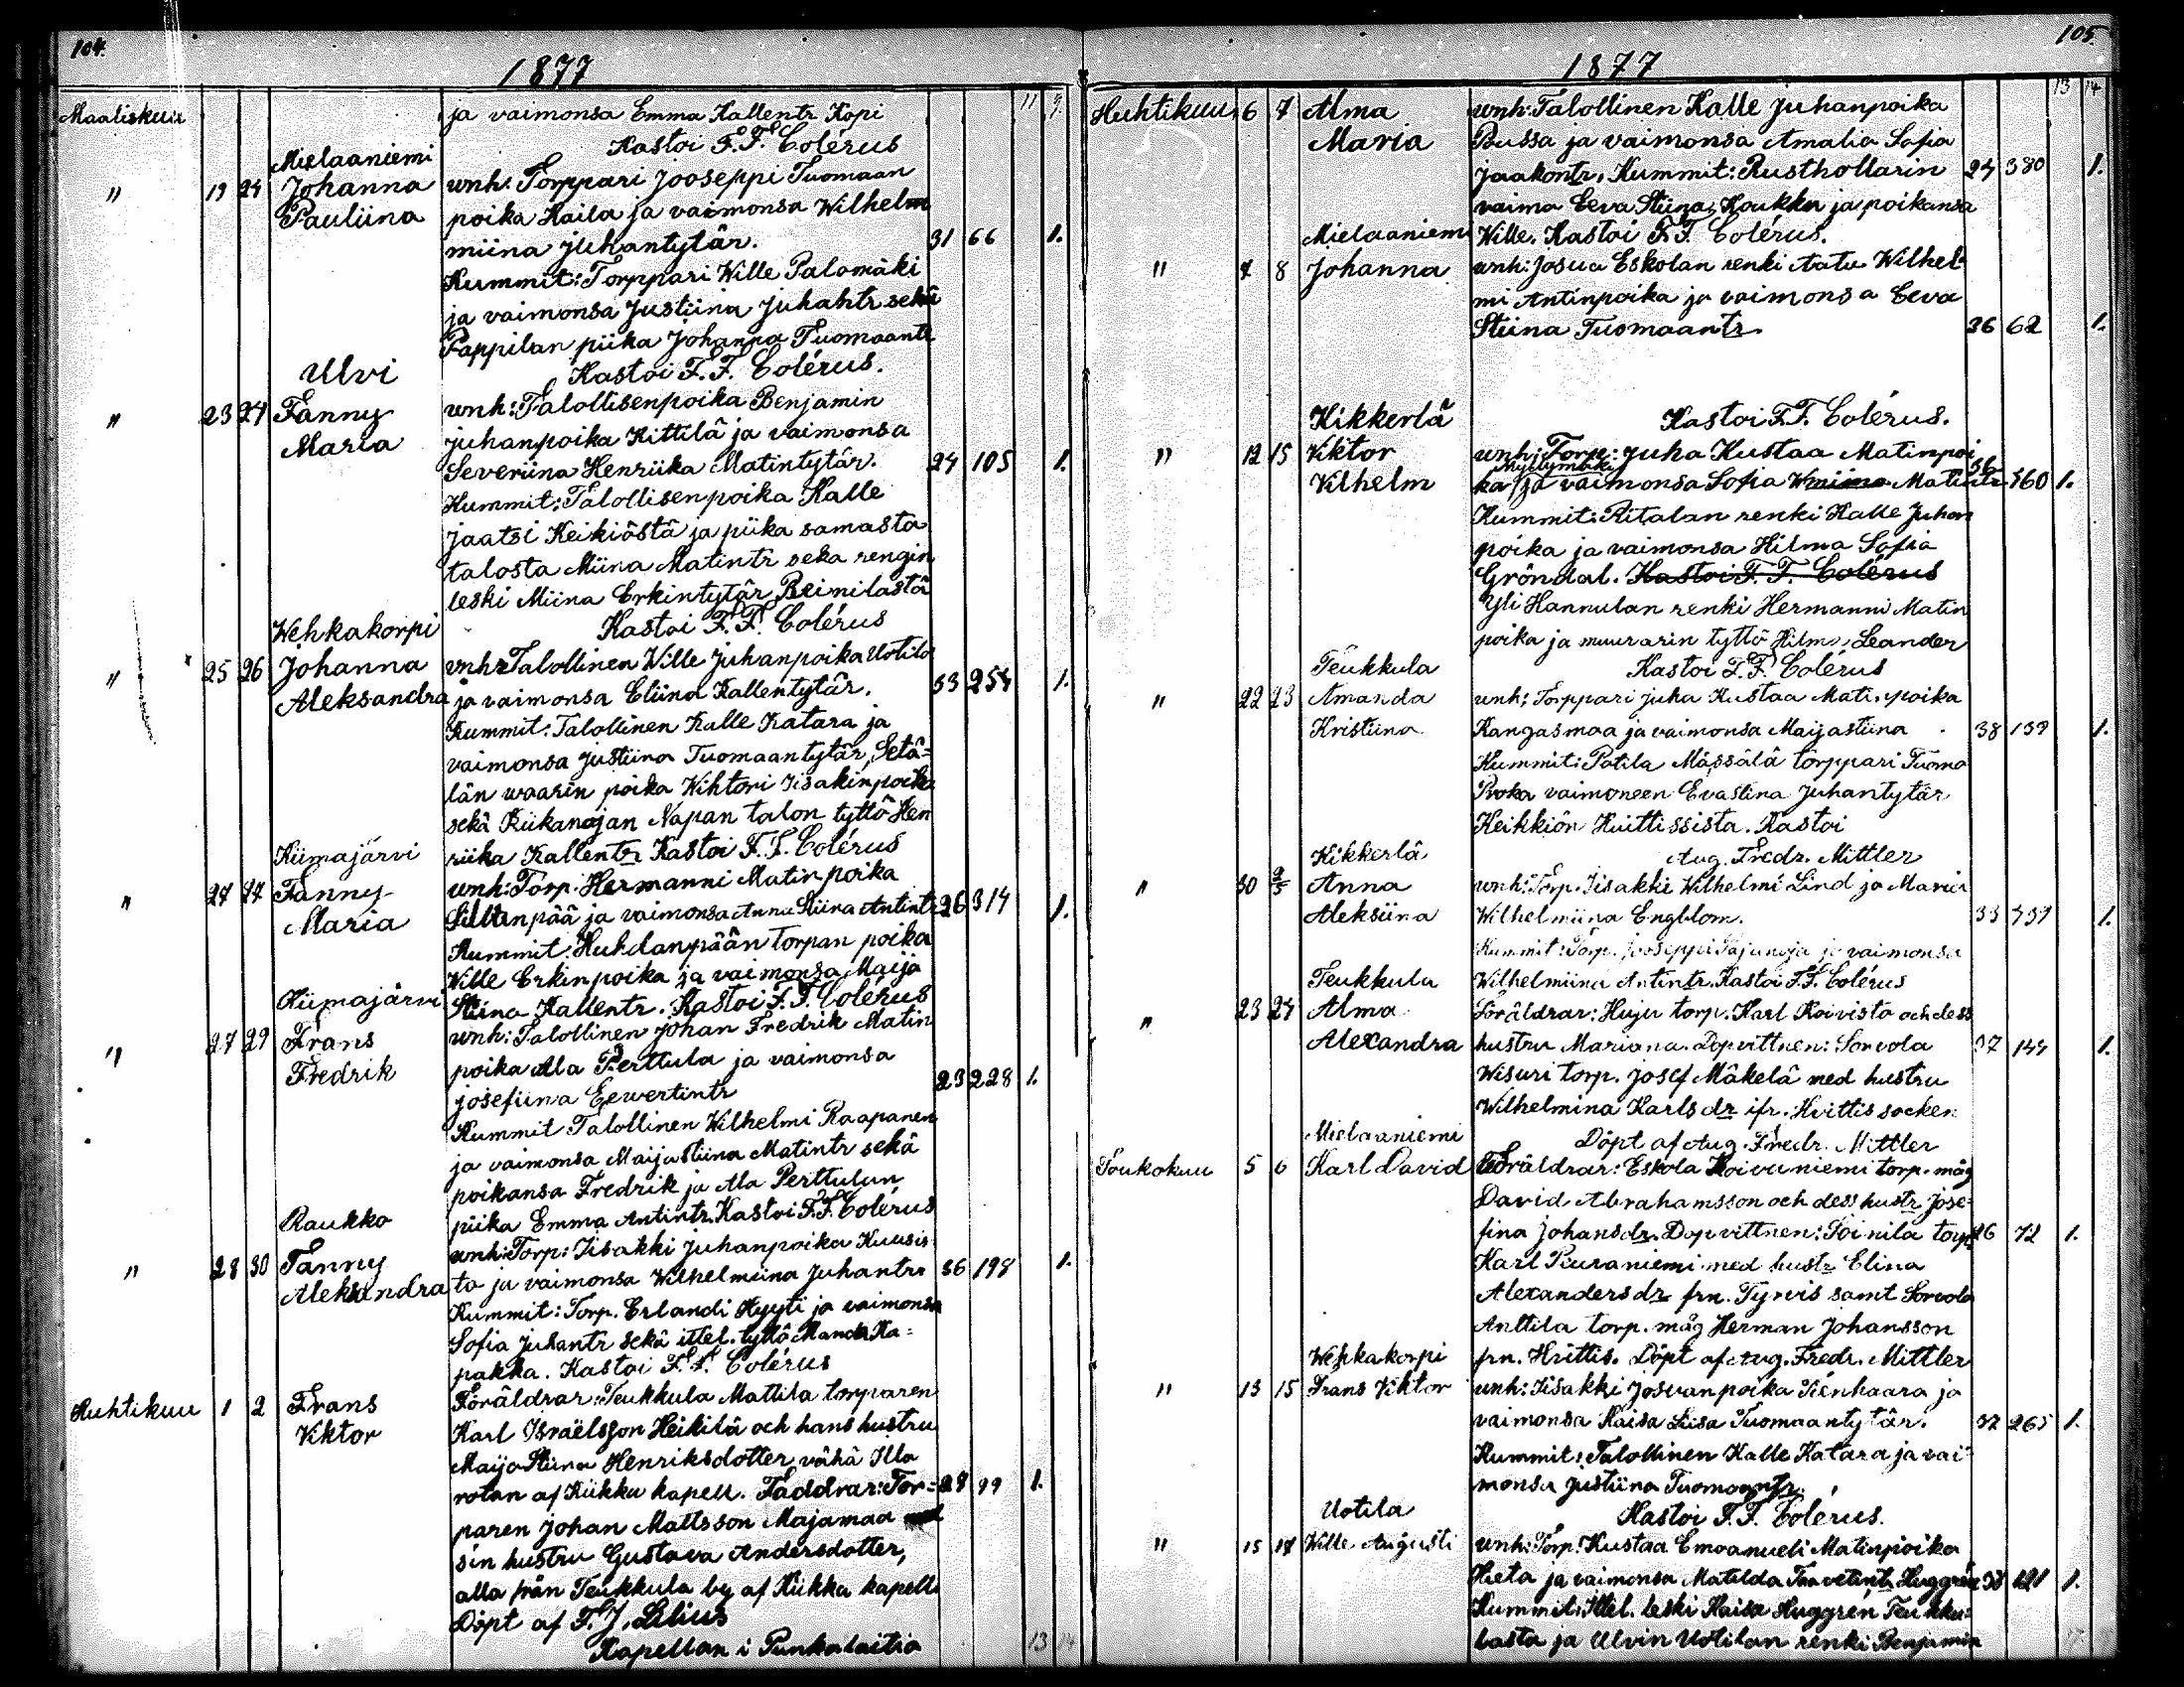 104.
1877
Maaliskuu ja vaimonsa Emma Kallentr Kopi 11 9
Kastoi F. F. Colérus
Mielaaniemi
" 19 24 Johanna unh: Torppari Jooseppi Tuomaan
Pauliina poika Kaila ja vaimonsa Wilhelm
miina Juhantytär. 31 66 1.
Kummit: Torppari Wille Palomäki
ja vaimonsa Justiina Juhantr sekä
Pappilan piika Johanna Tuomaantr
Ulvi Kastoi F. F. Colérus.
" 23 24 Fanny unh: Talollisenpoika Benjamin
Maria Juhanpoika Kittilä ja vaimonsa
Severiina Henriika Matintytär. 24 105 1.
Kummit: Talollisenpoika Kalle
Jaatsi Keikiästä ja piika samasta
talosta Miina Matintr seka rengin
leski Miina Erkintytär Beinilastä
Wehkakorpi Kastoi F. F. Colérus
" 25 26 Johanna unh: Talollinen Wille Juhanpoika Uotila
Aleksandra ja vaimonsa Eliina Kallentytär. 33 254 1.
Kummit: Talollinen Kalle Katara ja
vaimonsa Justiina Tuomaantytär, Setä=
län waarin poika Wihtori Iisakinpoika
sekä Riikanojan Napan talon tyttö Hen
Kiimajärvi riika Kallentr Kastoi F. F. Colérus
" 27 27 Fanny unh: Torp. Hermanni Matinpoika
Maria Sillanpää ja vaimonsa Anna Stiina Antintr 26 314 1.
Kummit: Huhdanpään Torpan poika
Ville Erkinpoika ja vaimonsa Maija
Kiimajärvi Stiina Kallentr. Kastoi F. F. Colérus
" 27 29 Frans unh: Talollinen Johan Fredrik Matin
Fredrik poika Ala Perttula ja vaimonsa
Josefiina Eewertintr 23 228 1.
Kummit Talollinen Wilhelmi Raapanen
ja vaimonsa Maijastiina Matintr sekä
poikansa Fredrik ja Ala Perttulun
Raukko piika Emma Antintr. Kastoi F. F. Colérus
" 28 30 Fanny unh: Torp: Iisakki Juhanpoika Kuusis
Aleksandra to ja vaimonsa Wilhelmiina Juhantr 36 198 1.
Kummit: Torp. Erlandi Hyyti ja vaimonsa
Sofia Juhantr sekä ittel. tyttö Manda Ka=
pakka. Kastoi F. F. Colérus
Huhtikuu 1 2 Frans Föräldrar: Teukkula Mattila torparen
Viktor Karl Israëlsson Heikilä och hans hustru
Maija Stiina Henriksdotter, vähä Illo
rotan af Kiikku kapell. Faddrar: Tor= 28 99 1.
paren Johan Mattsson Majamaa
sin hustru Gustava Andersdotter,
alla från Teukkula by af Kiikka kapell
Döpt af F. J. Lilius
Kapellan i Punkalaitio 13 14
105.
1877
13 14
Huhtikuu 6 7 Alma unh: Talollinen Kalle Juhanpoika
Maria Bussa ja vaimonsa Amalia Sofia
Jaakontr. Kummit: Rusthollarin 24 380 1.
vaimo Eeva Stiina Houkka ja poikansa
Mielaaniemi Wille. Kastoi F. F. Colérus.
" 7 8 Johanna unh: Josua Eskolan renki Aatu Wilhel
mi Antinpoika ja vaimonsa Eeva
Stiina Tuomaantr. 36 62 1.
Kikkerlä Kastoi F. F. Colérus.
" 12 15 Viktor unh: Torp: Juha Kustaa Matinpoi
Vilhelm ka Myllymäki ja vaimonsa Sofia Wmiina Matintr 36 360 1.
Kummit: Ritalan renki Kalle Juhan
poika ja vaimonsa Hilma Sofia
Gröndal. Kastoi F. F. Colérus
Yli Hannulan renki Hermanni Matin
poika ja muurarin tyttö Hilma Leander
Teukkula Kastoi F. F. Colérus
" 22 23 Amanda unh: Torppari Juha Kustaa Matinpoika
Kristiina Kangasmaa ja vaimonsa Maijastiina 38 139 1.
Kummit: Potila Mässälä torppari Tuoma
Proka vaimoneen Evastina Juhantytär
Keikkiön Huittissista. Kastoi
Kikkerlä Aug. Fredr. Mittler
" 30 2/5 Anna unh: Torp. Iisakki Wilhelmi Lind ja Maria
Aleksiina Wilhelmiina Engblom. 33 339 1.
Kummit: Torp. Jooseppi Pajunoja ja vaimonsa
Teukkula Wilhelmiina Antintr. Kastoi F. F. Colérus
" 23 24 Alma Föräldrar: Huju torp. Karl Koivisto och dess
Alexandra hustru Mariana. Dopvittnen: Sorvola 37 144 1.
Wisuri torp. Josef Mäkelä med hustru
Wilhelmina Karlsdr ifr. Hvittis socken
Mielaaniemi Döpt af Aug. Fredr. Mittler
Toukokuu 5 6 Karl David Föräldrar: Eskola Koivuniemi torp. måg
David Abrahamsson och dess hustr Jose=
fina Johansdr. Dopvittnen: Toinila torp 26 72 1.
Karl Piuraniemi med hustr Elina
Alexandersdr frn. Tyrvis samt Sorvola
Anttila torp. måg Herman Johansson
Wehkakorpi frn. Hvittis. Döpt af Aug. Fredr. Mittler
" 13 15 Frans Viktor unh: Iisakki Josuanpoika Tienhaara ja
vaimonsa Kaisa Liisa Tuomaantytär. 32 265 1.
Kummit: Talollinen Kalle Katara ja vai
monsa Justiina Tuomaantr.
Uotila Kastoi F. F. Colérus.
" 15 17 Wille Augusti unh: Torp: Kustaa Emaanueli Matinpoika
Hieta ja vaimonsa Matilda Taavetintr Huggrén 38 121 1.
Kummit: Ittel. leski Kaisa Huggrén Teukku=
lasta ja Ulvin Uotilan renki Benjamin